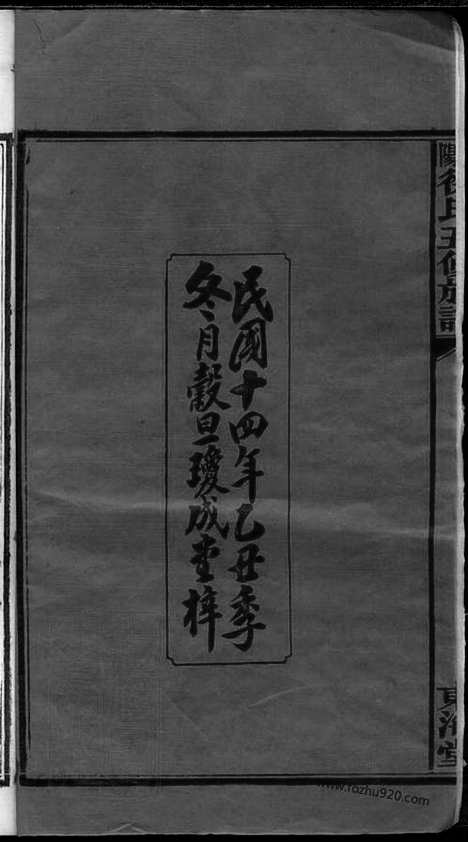 民國十四年乙丑季
冬月穀旦瓊成堂梓
陽徐氏五修族譜
東海堂
www.fozhu920.com